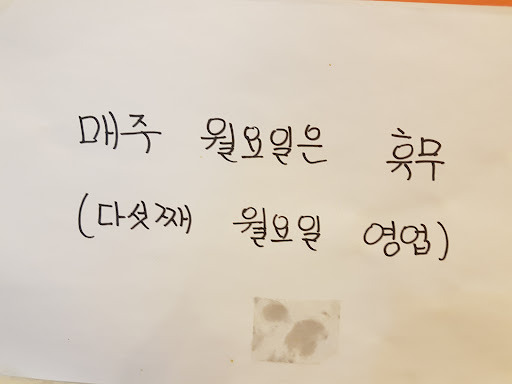 매주 월요일은 휴무
(다섯째 월요일 영업)